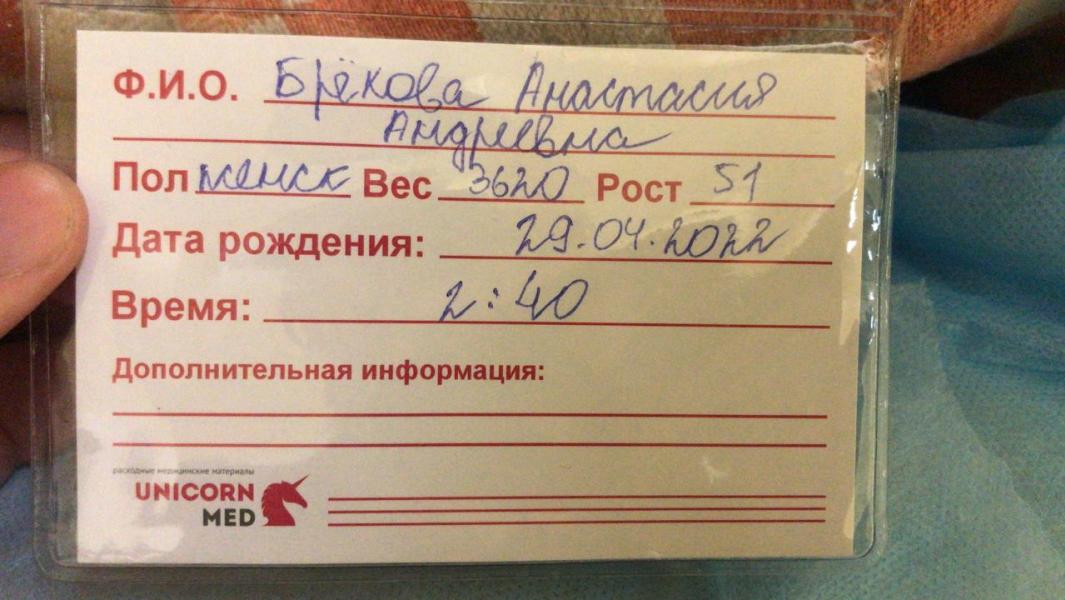 Ф.И.О. Брёкова Анастасия
Андреевна
Пол женск Вес 3620 Рост 51
Дата рождения: 29.04.2022
Время: 2:40
Дополнительная информация:
расходные медицинские материалы
UNICORN
MED